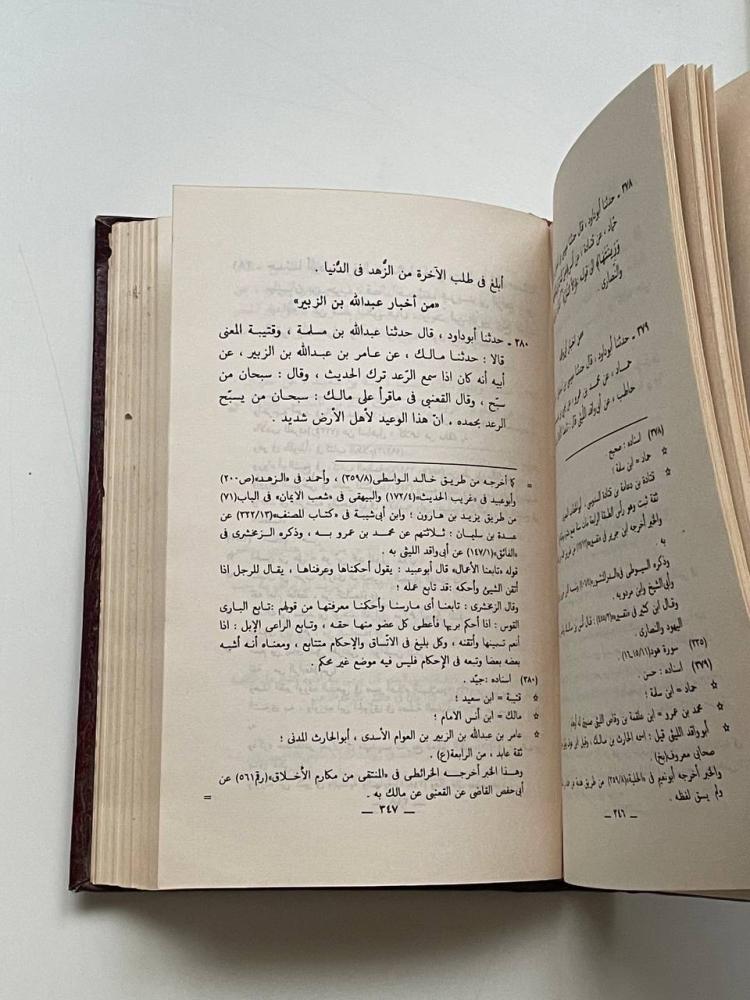 ٣٧٨ ـ حدثنا أبوداود ، قال حدثنا
حماد ، عن قتادة :
والنصارى .
٣٧٩ ـ حدثنا أبوداود ، قال حدثنا
حماد ، عن محمد بن عمرو ،
حاطب ، عن أبي واقد الليثي قال :
(٣٧٨) اسناده : صحيح .
☆ حماد = ابن سلمة ؛
☆ قتادة بن دعامة بن قتادة السدوسي ، أبوالخطاب
ثقة ثبت وهو رأس الطبقة الرابعة مات سنة
والخبر أخرجه ابن جرير فى
به .
وذكره السيوطى فى
وأبى الشيخ وابن مردويه .
وقال ابن كثير فى
اليهود والنصارى .
(٢٣٥) سورة هود(١٥،١٦/١١) .
(٣٧٩) اسناده : حسن .
☆ حماد = ابن سلمة ؛
☆ محمد بن عمرو = ابن علقمة بن وقاص الليثى
☆ أبوواقد الليثى قيل : اسمه الحارث بن مالك ، وقيل ابن عوف
صحابى معروف(بخ) .
والخبر أخرجه أبونعيم فى «الحلية»(٣٥٩/٨) من طريق
ولم يسق لفظه .
— ٣٤٦ —
أبلغ فى طلب الآخرة من الزُّهد فى الدُّنيا .
«من أخبار عبدالله بن الزبير»
٣٨٠ ـ حدثنا أبوداود ، قال حدثنا عبدالله بن مسلمة ، وقتيبة المعنى
قالا : حدثنا مالك ، عن عامر بن عبدالله بن الزبير ، عن
أبيه أنه كان اذا سمع الرّعد ترك الحديث ، وقال : سبحان من
سبّح ، وقال القعنبى فى ماقرأ على مالك : سبحان من يسبّح
الرعد بحمده . انّ هذا الوعيد لأهل الأرض شديد .
= كما أخرجه من طريق خالد الواسطى(٣٥٩/٨) ، وأحمد فى «الزهد»(ص٢٠٠)
وأبوعبيد فى «غريب الحديث»(١٧٢/٤) والبيهقى فى «شعب الايمان» فى الباب(٧١)
من طريق يزيد بن هارون ؛ وابن أبى شيبة فى «كتاب المصنف»(٣٢٢/١٣) عن
عبدة بن سليمان : ثلاثتهم عن محمد بن عمرو به ، وذكره الزمخشرى فى
«الفائق»(١٤٧/١) عن أبى واقد الليثى به .
قوله «تابعنا الأعمال» قال أبوعبيد : يقول أحكمناها وعرفناها ، يقال للرجل اذا
أتقن الشىْ وأحكه : قد تابع عمله ؛
وقال الزمخشرى : تابعنا أى مارسنا وأحكمنا معرفتها من قولهم : تابع البارى
القوس : اذا أحكم بريها فأعطى كل عضو منها حقه ، وتابع الراعى الإبل : اذا
أنعم تسمينها وأتقنه ، وكل بليغ فى الاتّساق والإحكام متتابع ، ومعناه أنه أشبه
بعضه بعضا وتبعه فى الإحكام فليس فيه موضع غير محكم .
(٣٨٠) اسناده : جيّد .
☆ قتيبة = ابن سعيد ؛
☆ مالك = ابن أنس الامام ؛
☆ عامر بن عبدالله بن الزبير بن العوام الأسدى ، أبوالحارث المدنى ؛
ثقة عابد ، من الرابعة(ع) .
وهذا الخبر أخرجه الخرائطى فى «المنتقى من مكارم الأخلاق»(رقم٥٦١) عن
أبى حفص القاضى عن القعنبى عن مالك به .
=
— ٣٤٧ —